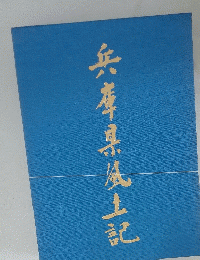 兵庫県風土記